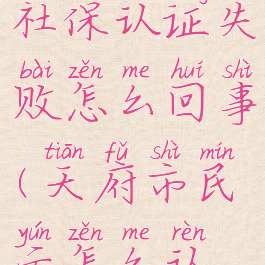 社保认证失
bài zěn me huí shì
败怎么回事
tiān fǔ shì mín
（天府市民
yún zěn me rèn
云怎么认